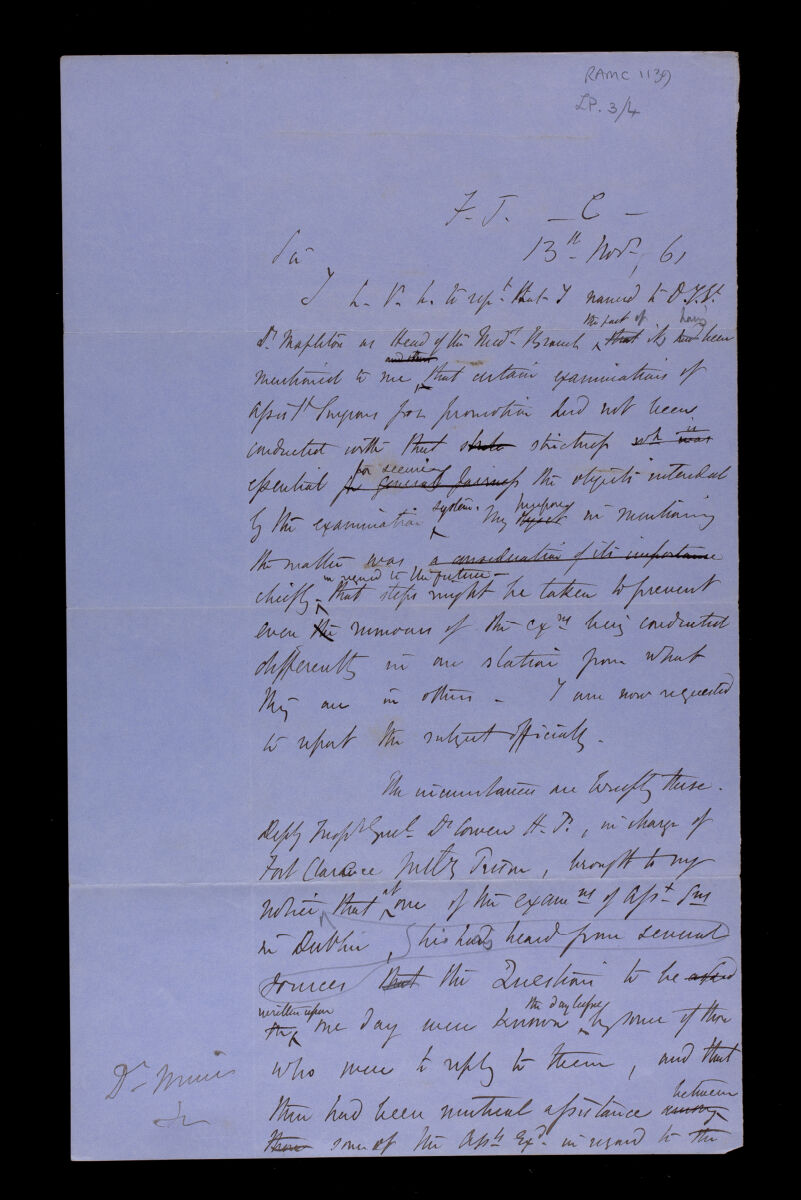 RAMC 1139
LP. 3/4
F. J. — C —
13th Novr, 61
Sir
I h. t. h. to rept that I named to D.
Dr Mapleton as Head of the Medl Branch the fact of that its had having been
mentioned to me, and than that certain examinations of
Assistt Surgeons for promotion had not been
conducted with that strictness wh was is
essential for general fairness for securing the objects intended
by the examination system. My object purpose in mentioning
the matter was a consideration of its importance
chiefly in regard to the future – that steps might be taken to prevent
even the rumours of the exns being conducted
differently in one station from what
they are in others – I am now requested
to report the subject officially.
The circumstances are briefly these.
Depty Inspr Genl Dr Cowen H. P., in charge of
Fort Clarence Milty Prison, brought to my
notice, that at one of the examns of Asst Sns
in Dublin, he had heard from several
sources that the Questions to be asked
written upon the one day were known the day before by some of those
who were to reply to them, and that
there had been mutual assistance among between
those some of the in regard to the
Dr